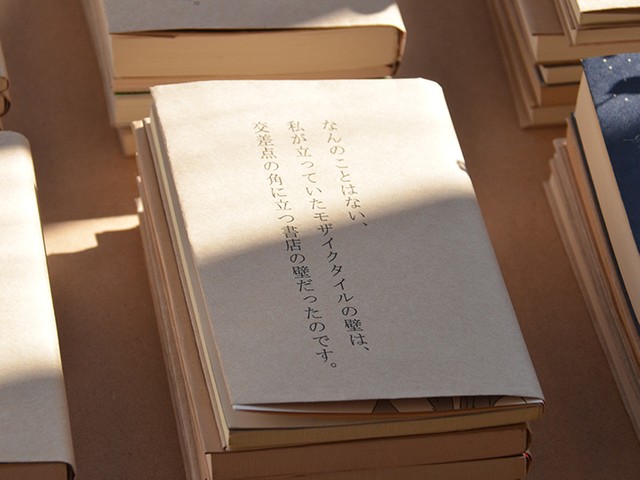 なんのことはない、
私が立っていたモザイクタイルの壁は、
交差点の角に立つ書店の壁だったのです。